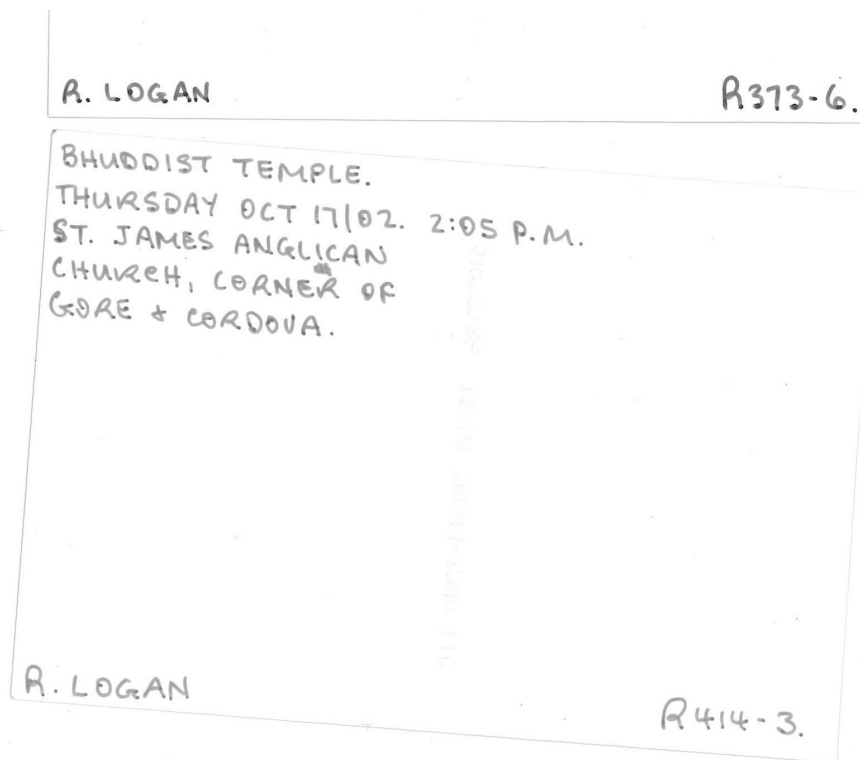 R. LOGAN R373-6.
BHUDDIST TEMPLE.
THURSDAY OCT 17/02. 2:05 P.M.
ST. JAMES ANGLICAN
CHURCH, CORNER OF
GORE & CORDOVA.
R. LOGAN R414-3.